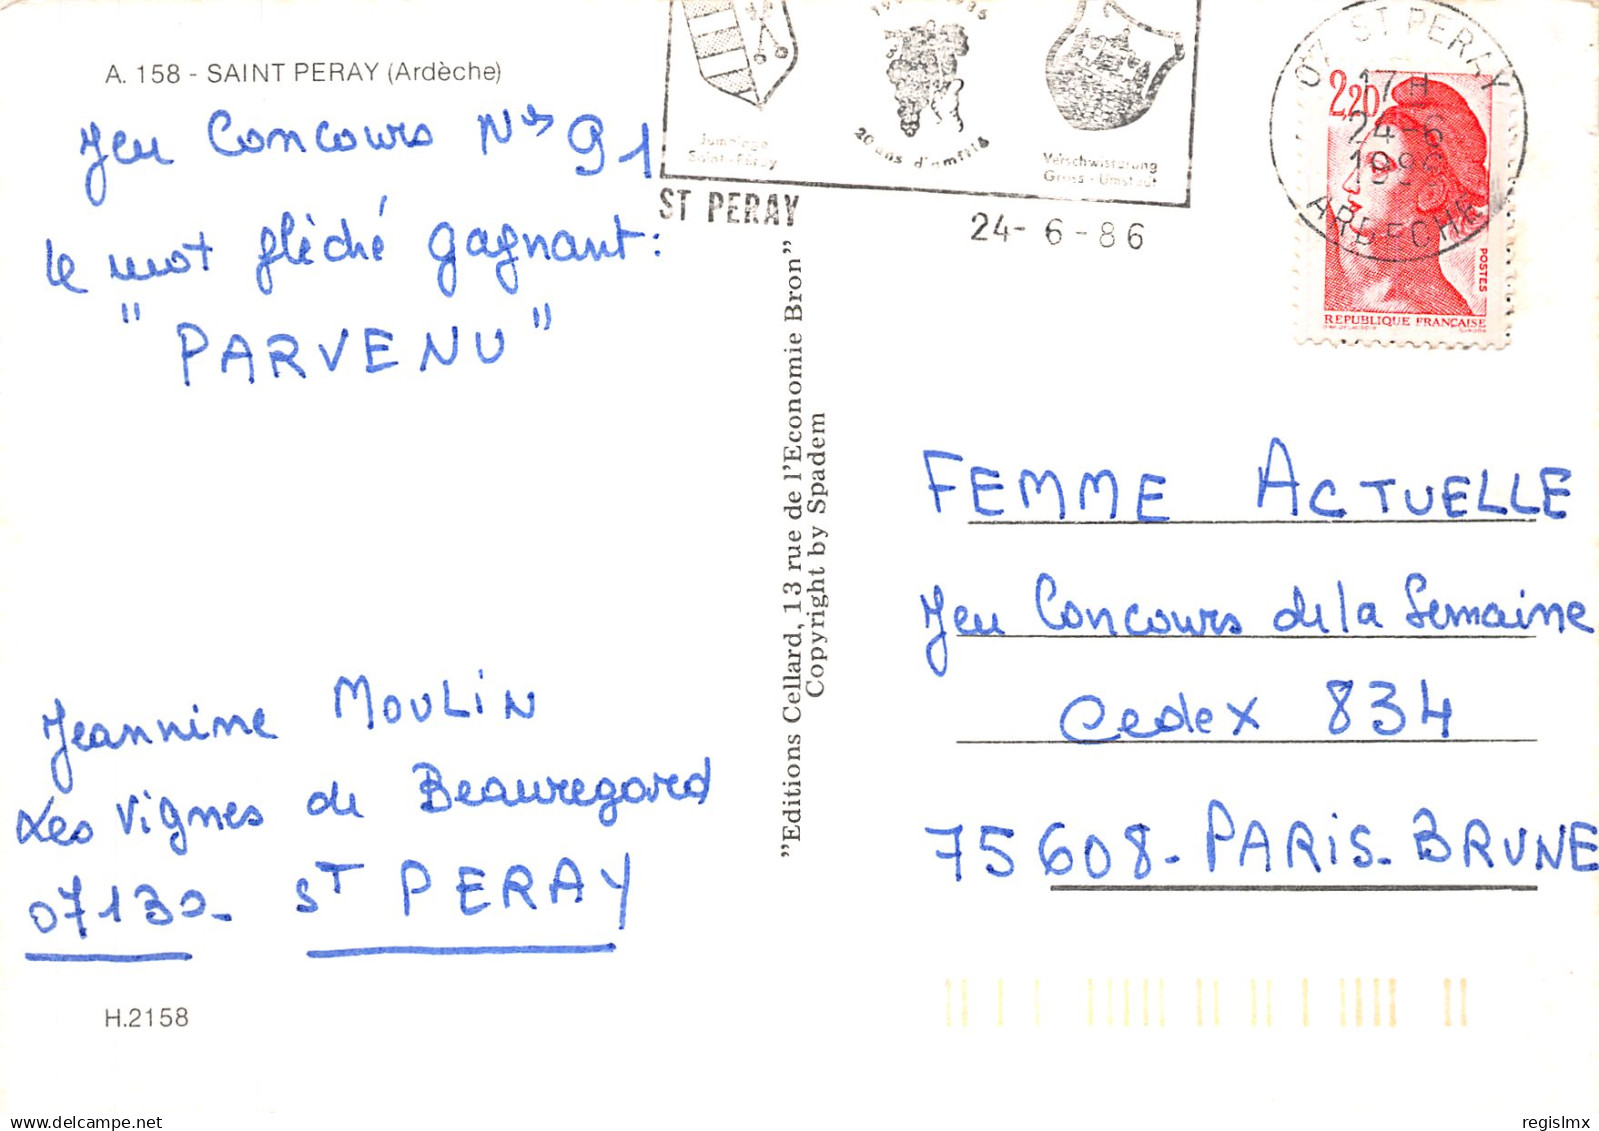 A. 158 - SAINT PERAY (Ardèche)
Jeu Concours N° 91
le mot fléché gagnant :
" PARVENU "
Jeannine MOULIN
Les Vignes de Beauregard
07130 - ST PERAY
H.2158
"Editions Cellard, 13 rue de l'Economie Bron"
Copyright by Spadem
Jumelage
Saint-Péray
20 ans d'amitié
Verschwisterung
Gross-Umstadt
ST PERAY
24-6-86
07 ST PERAY
17 H
24-6
1986
ARDECHE
2,20
POSTES
REPUBLIQUE FRANÇAISE
FEMME ACTUELLE
Jeu Concours de la Semaine
Cedex 834
75608 - PARIS - BRUNE
delcampe.net
regislmx